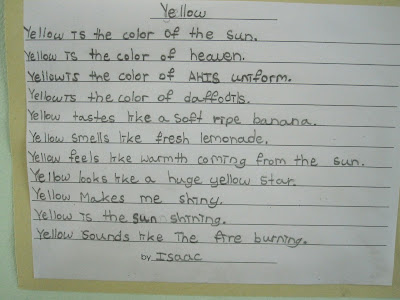 Yellow
Yellow is the color of the sun.
Yellow is the color of heaven.
Yellow is the color of AHIS uniform.
Yellow is the color of daffodils.
Yellow tastes like a soft ripe banana.
Yellow smells like fresh lemonade.
Yellow feels like warmth coming from the sun.
Yellow looks like a huge yellow star.
Yellow Makes me shiny.
Yellow is the sun shining.
Yellow Sounds like The fire burning.
by Isaac